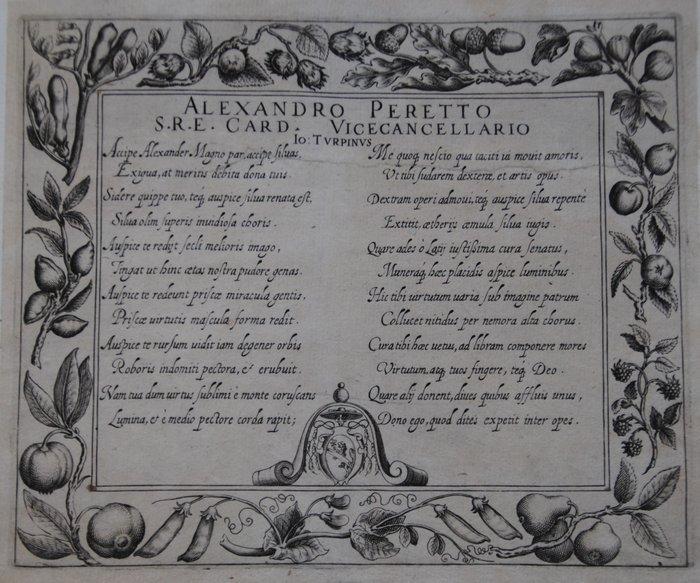 ALEXANDRO PERETTO
S.R.E. CARD. VICECANCELLARIO
IO: TVRPINVS
Accipe Alexander Magno par, accipe siluas,
Exigua, at meritis debita dona tuis.
Sidere quippe tuo, teq́; auspice silua renata est,
Silua olim superis inuidiosa choris.
Auspice te redijt secli melioris imago,
Tingat ut hinc ætas nostra pudore genas.
Auspice te redeunt priscæ miracula gentis,
Priscæ virtutis mascula forma redit.
Auspice te rursum uidit iam degener orbis
Roboris indomiti pectora, et erubuit.
Nam tua dum virtus sublimi e monte coruscans
Lumina, et e medio pectore corda rapit;
Me quoq; nescio qua taciti ui mouit amoris,
Ut tibi sudarem dexteræ, et artis opus.
Dextram operi admoui, teq́; auspice silua repente
Extitit, ætherijs æmula silua iugis.
Quare ades ô Latij iustissima cura senatus,
Muneraq́; hæc placidis aspice luminibus.
Hic tibi virtutum uaria sub imagine patrum
Collucet nitidus per nemora alta chorus.
Cura tibi hæc uetus, ad libram componere mores
Virtutum, atq; tuos fingere, teq́; Deo.
Quare alij donent, diues quibus affluis unus,
Dono ego, quod dites expetit inter opes.